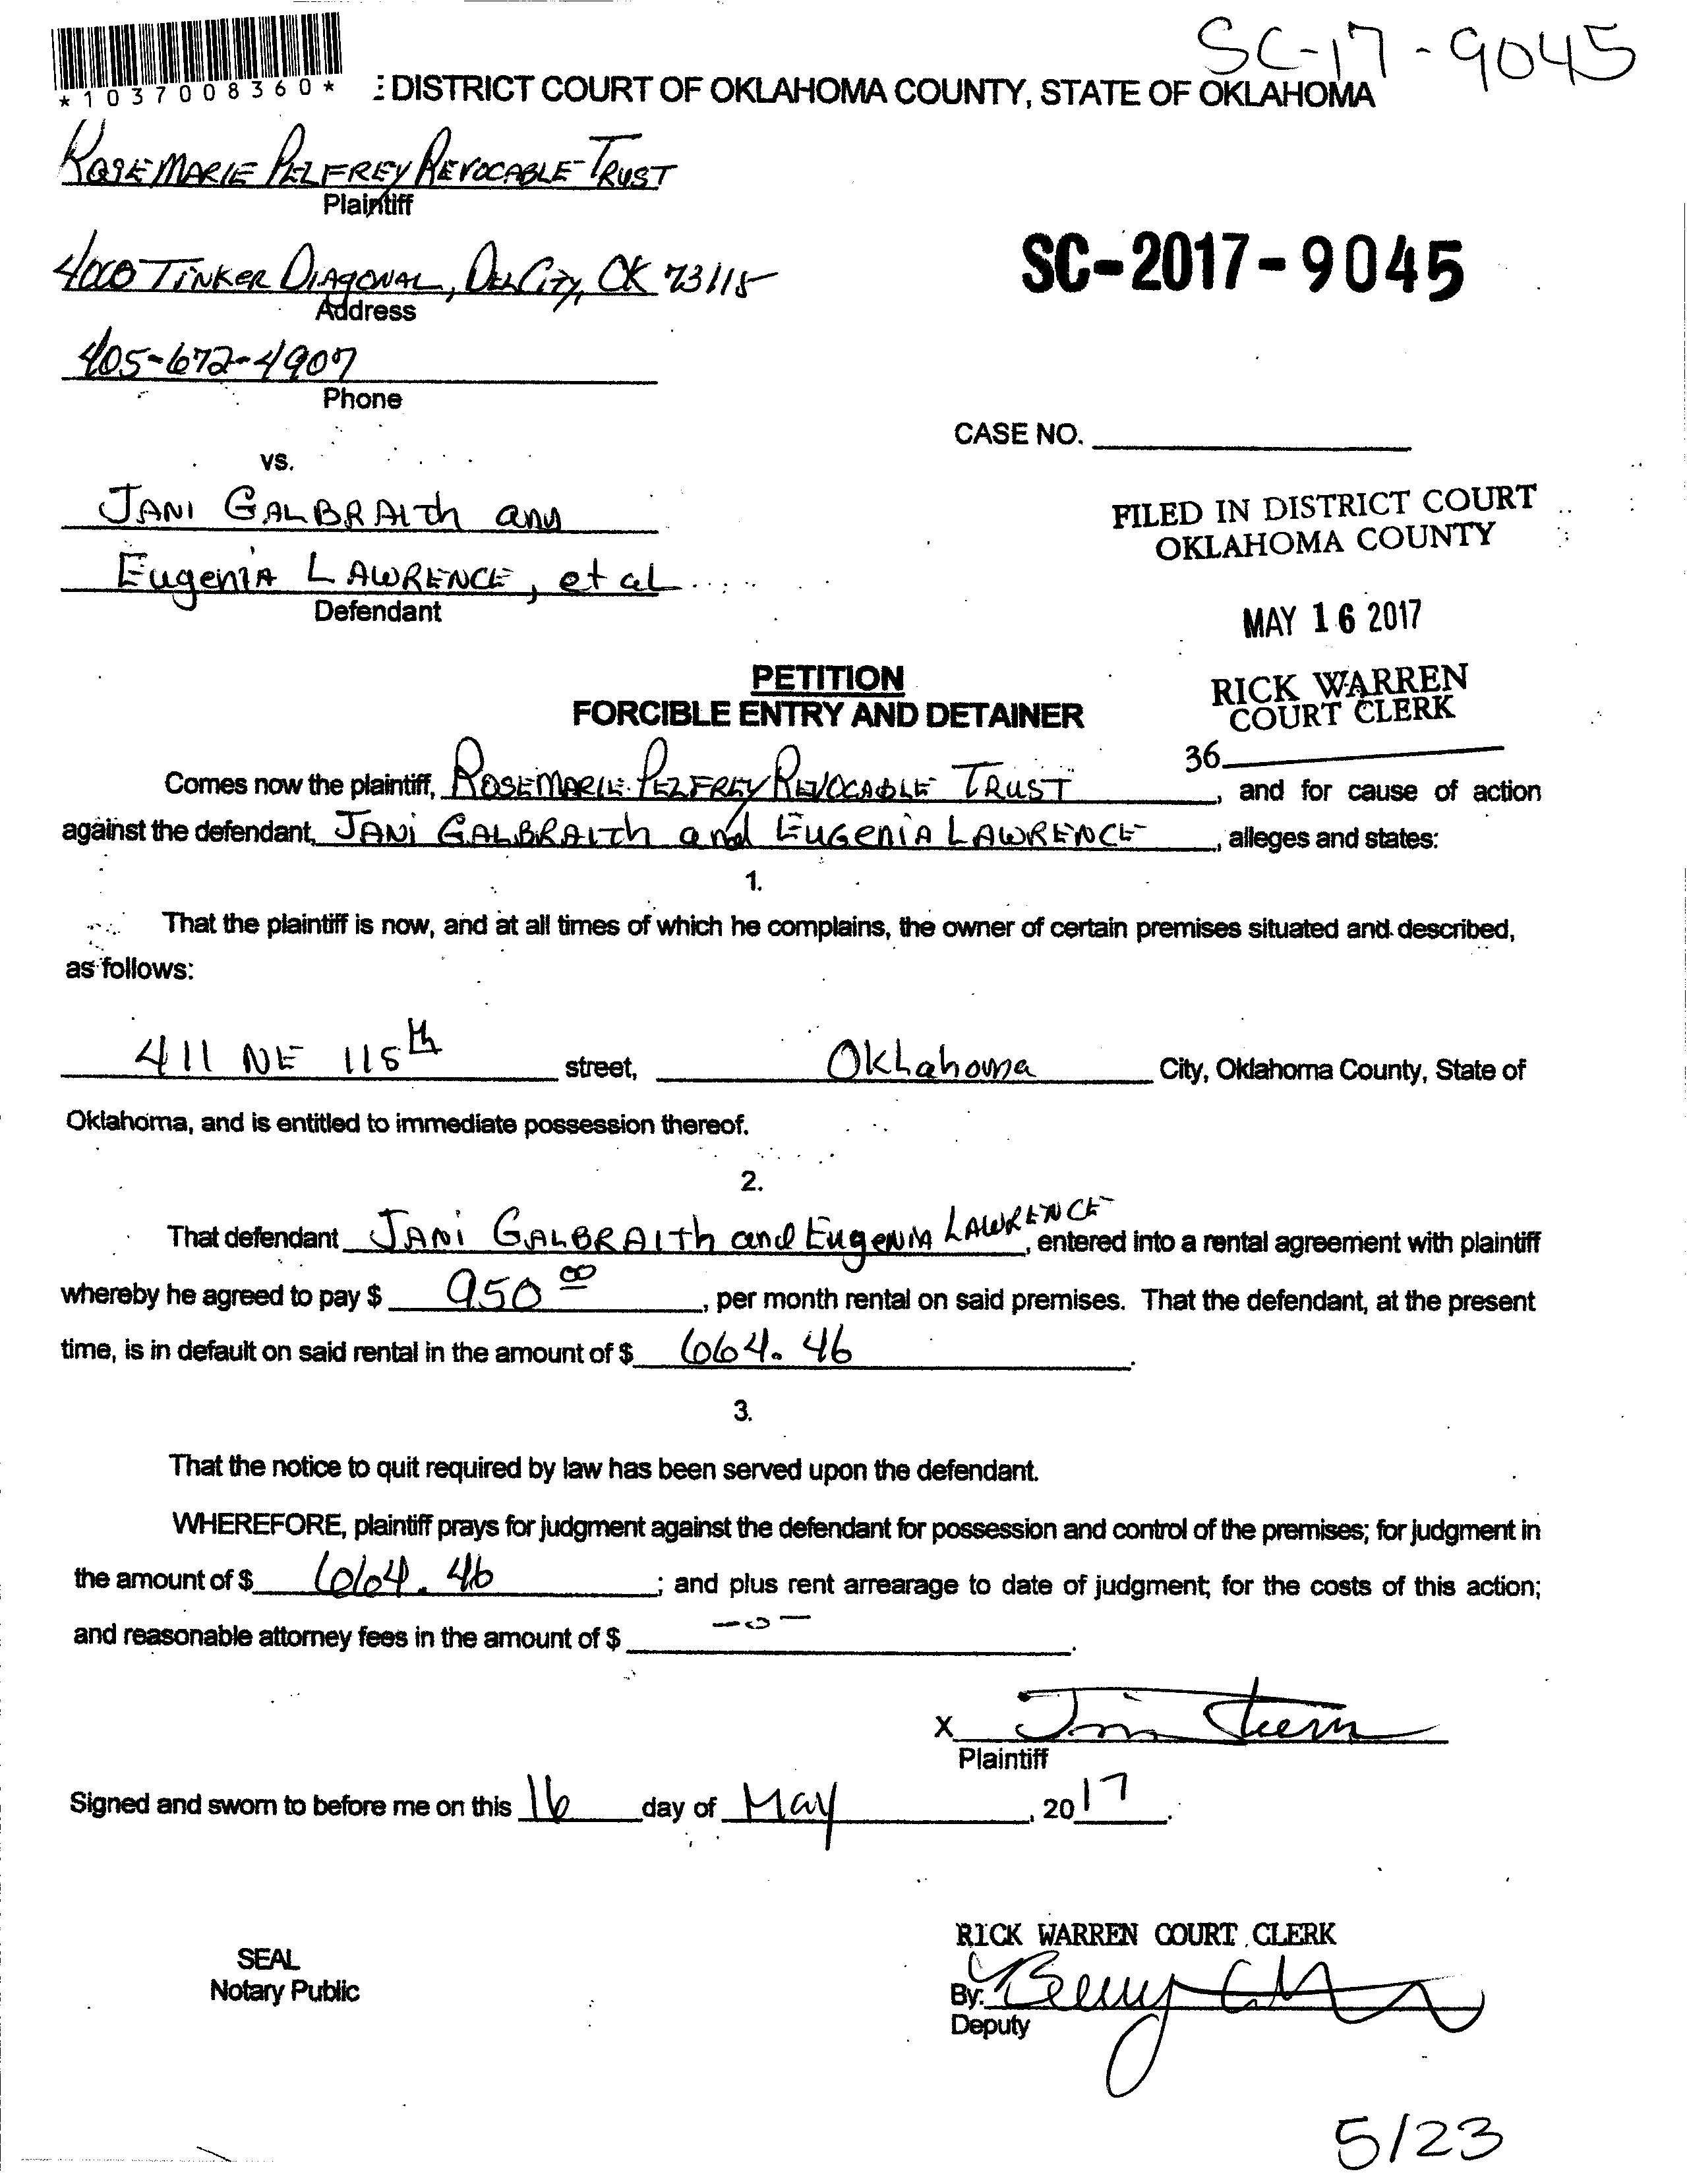 SC-17-9045
*1037008360*
: DISTRICT COURT OF OKLAHOMA COUNTY, STATE OF OKLAHOMA
ROSEMARIE PELFREY REVOCABLE TRUST
Plaintiff
4000 TINKER DIAGONAL, DEL CITY, OK 73115
Address
SC-2017-9045
405-672-4907
Phone
CASE NO.
vs.
JANI GALBRAITH and
FILED IN DISTRICT COURT
OKLAHOMA COUNTY
EugeniA LAWRENCE, et al
Defendant
MAY 16 2017
PETITION
FORCIBLE ENTRY AND DETAINER
RICK WARREN
COURT CLERK
36
Comes now the plaintiff, ROSEMARIE PELFREY REVOCABLE TRUST, and for cause of action
against the defendant, JANI GALBRAITH and EUGENIA LAWRENCE, alleges and states:
1.
That the plaintiff is now, and at all times of which he complains, the owner of certain premises situated and described,
as follows:
411 NE 115th street, Oklahoma City, Oklahoma County, State of
Oklahoma, and is entitled to immediate possession thereof.
2.
That defendant JANI GALBRAITH and EugeNIA LAWRENCE, entered into a rental agreement with plaintiff
whereby he agreed to pay $ 950 00, per month rental on said premises. That the defendant, at the present
time, is in default on said rental in the amount of $ 664.46.
3.
That the notice to quit required by law has been served upon the defendant.
WHEREFORE, plaintiff prays for judgment against the defendant for possession and control of the premises; for judgment in
the amount of $ 664.46; and plus rent arrearage to date of judgment; for the costs of this action;
and reasonable attorney fees in the amount of $ -0-.
X
Plaintiff
Signed and sworn to before me on this 16 day of May, 2017.
RICK WARREN COURT CLERK
SEAL
Notary Public
By:
Deputy
5/23